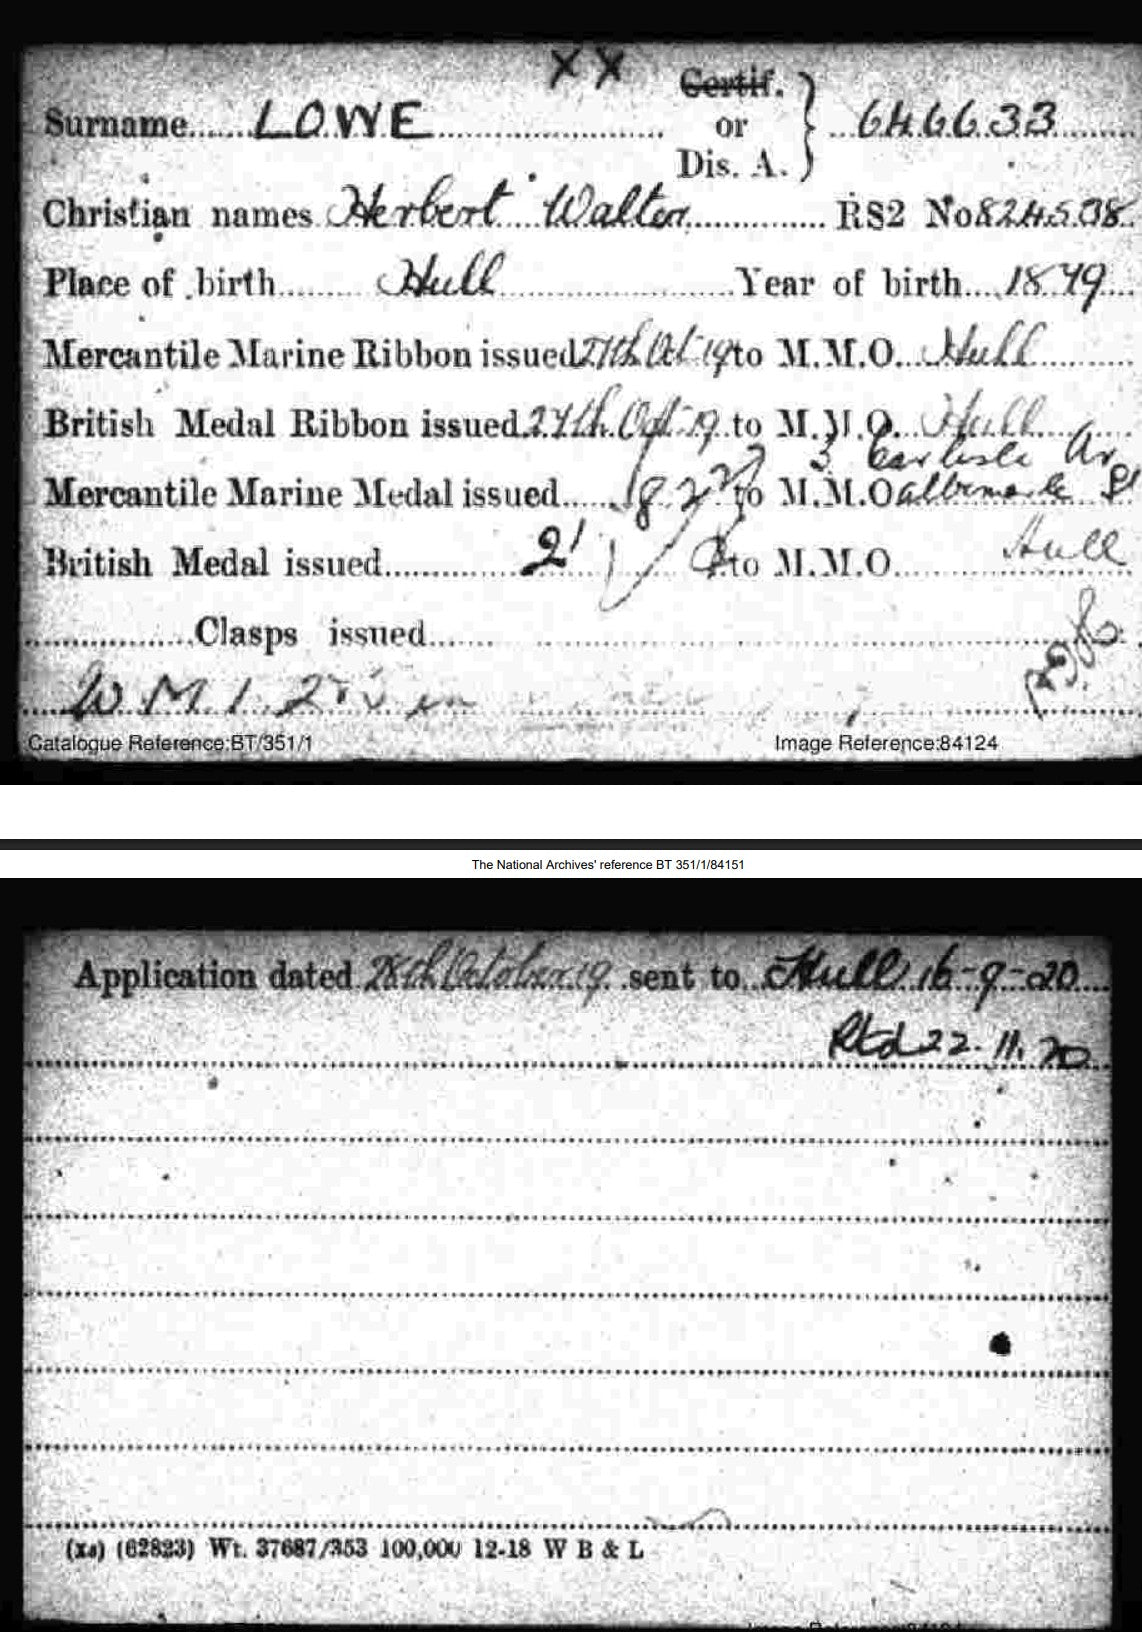 XX
Surname LOWE Certif. or Dis. A. } 646633
Christian names Herbert Walter RS2 No 824508
Place of birth Hull Year of birth 1879
Mercantile Marine Ribbon issued Oct 19 to M.M.O. Hull
British Medal Ribbon issued 27th Oct 19 to M.M.O. Hull
3 Carlisle Av
Mercantile Marine Medal issued to M.M.O albemarle St
British Medal issued to M.M.O. Hull
Clasps issued
W M 1
Catalogue Reference:BT/351/1 Image Reference:84124
The National Archives' reference BT 351/1/84151
Application dated 28th October 19 sent to Hull 16-9-20
Rtd 22.11.20
(62823) Wt. 37687/353 100,000 12-18 W B & L